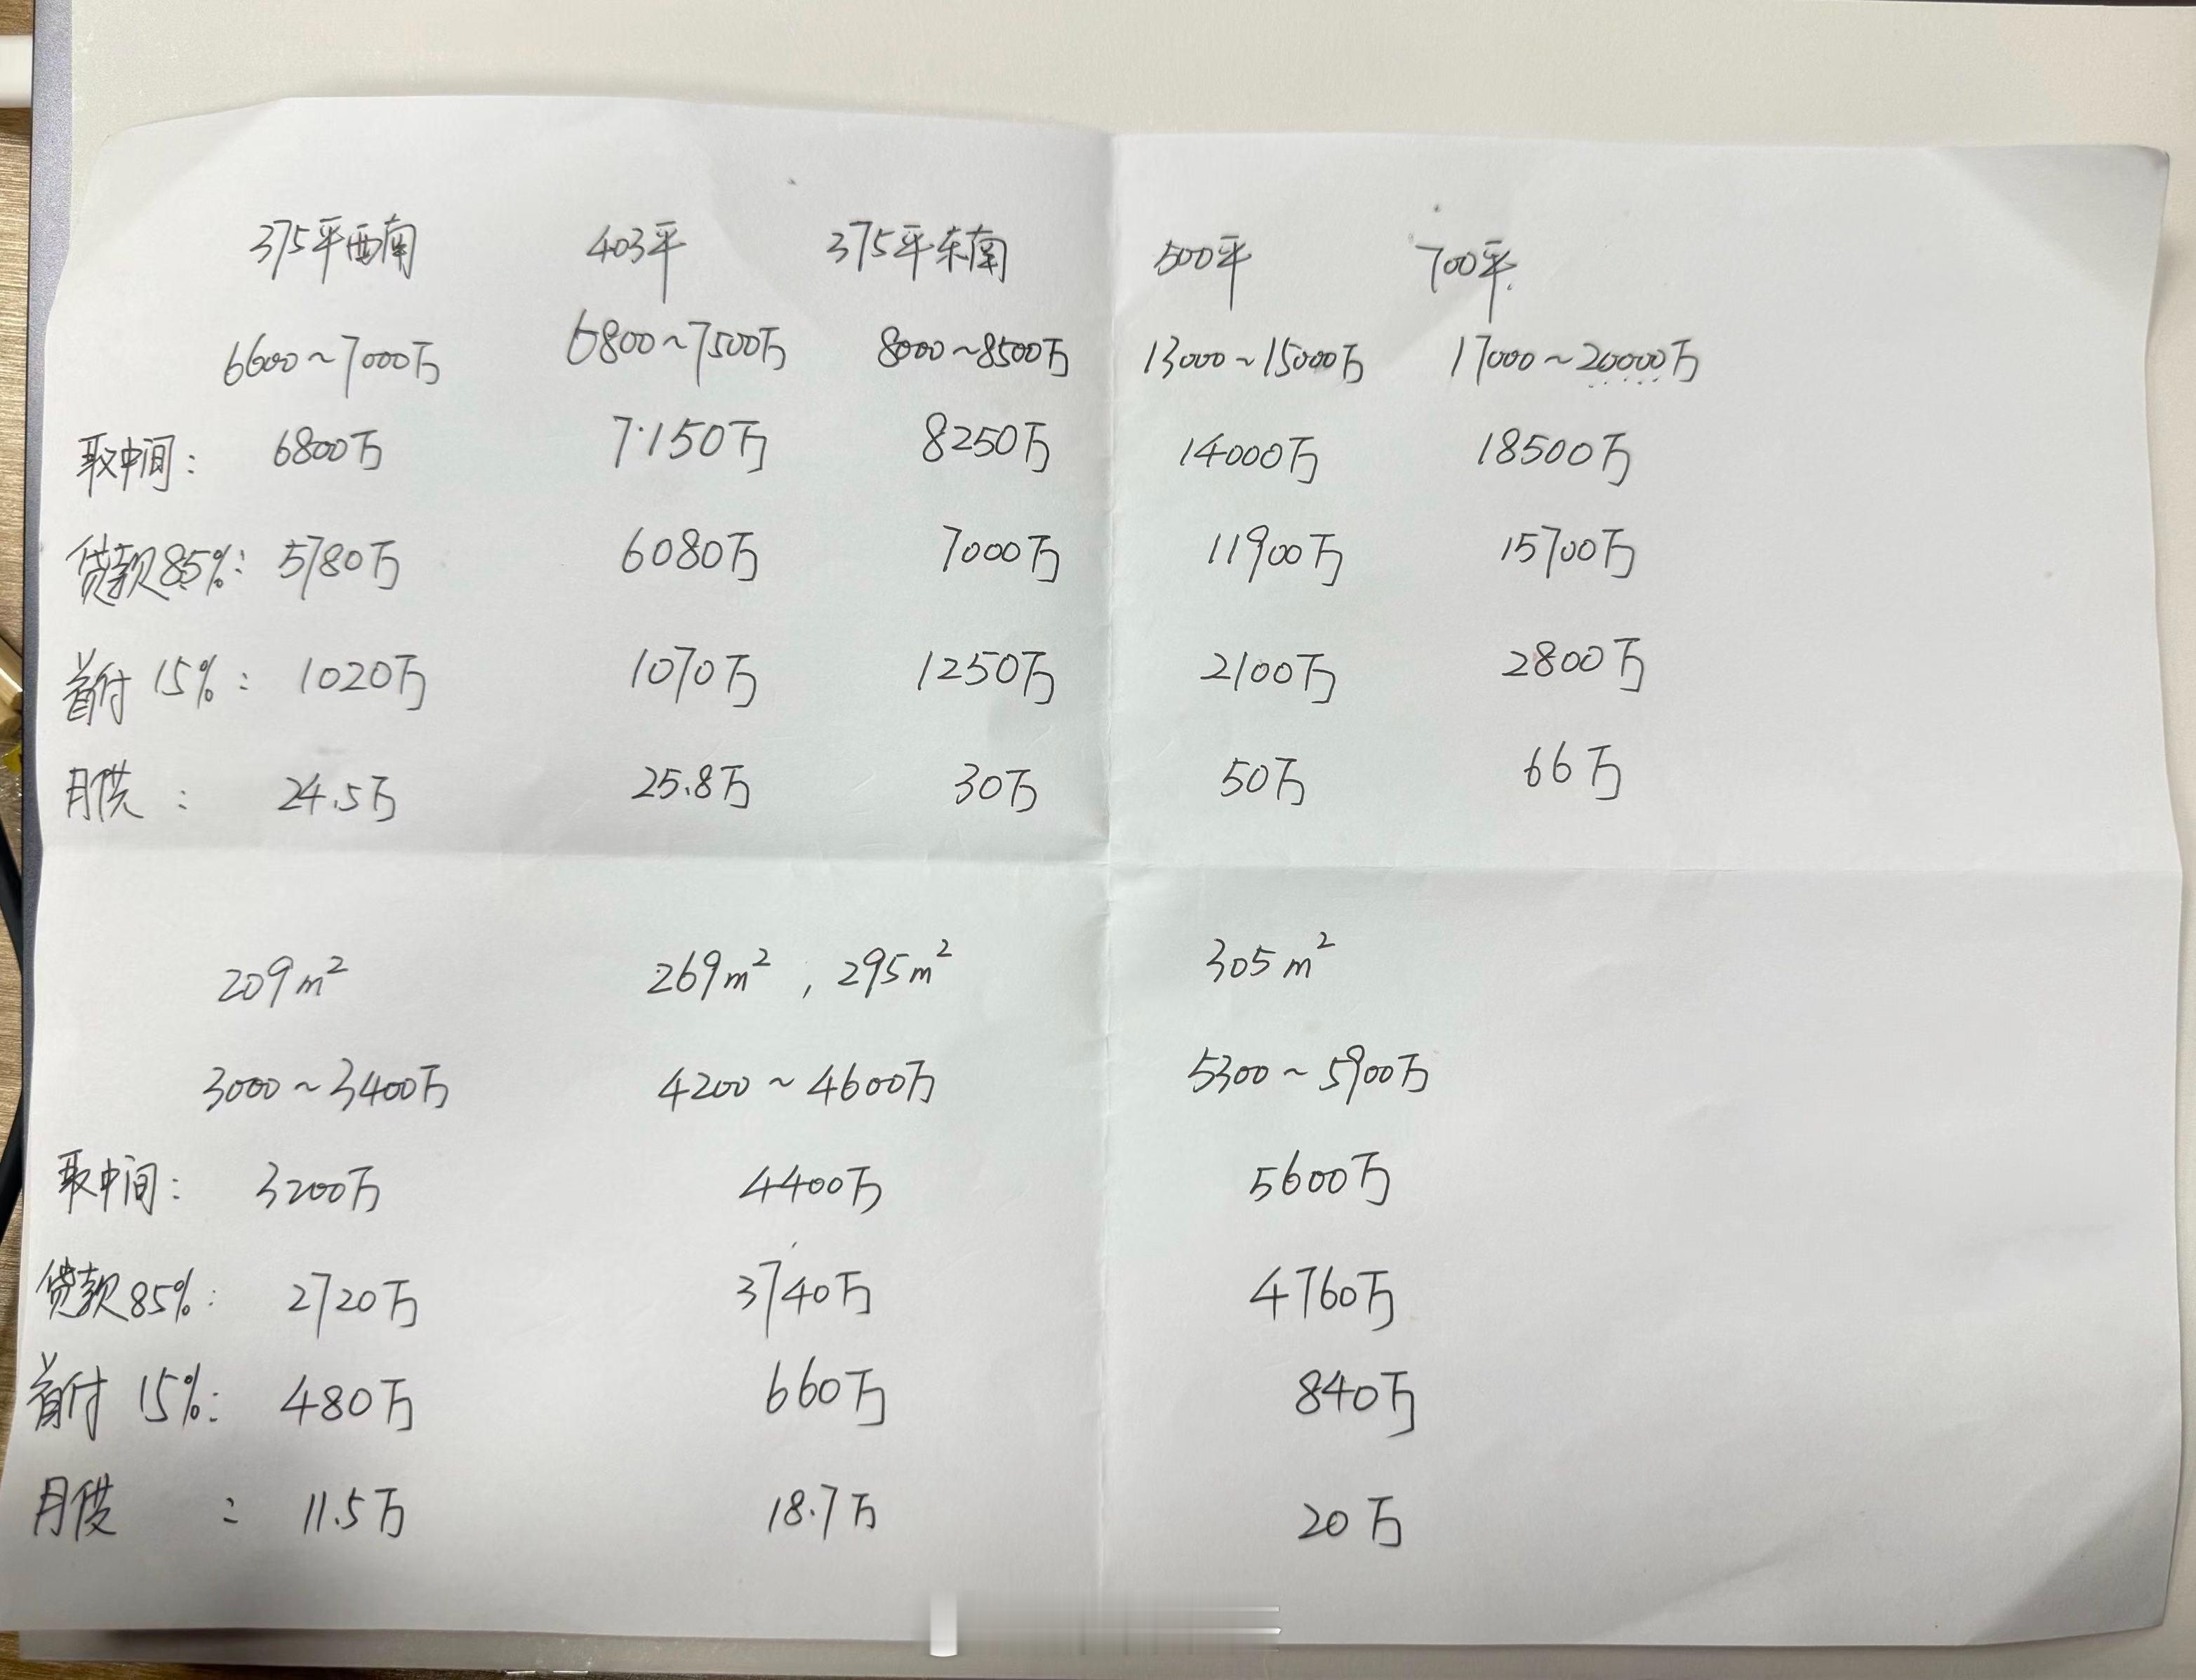 375平西南 403平 375平东南 500平 700平
6600~7000万 6800~7500万 8000~8500万 13000~15000万 17000~20000万
取中间: 6800万 7150万 8250万 14000万 18500万
贷款85%: 5780万 6080万 7000万 11900万 15700万
首付 15%: 1020万 1070万 1250万 2100万 2800万
月供: 24.5万 25.8万 30万 50万 66万
209m² 269m², 295m² 305m²
3000~3400万 4200~4600万 5300~5900万
取中间: 3200万 4400万 5600万
贷款85%: 2720万 3740万 4760万
首付 15%: 480万 660万 840万
月供: 11.5万 18.7万 20万